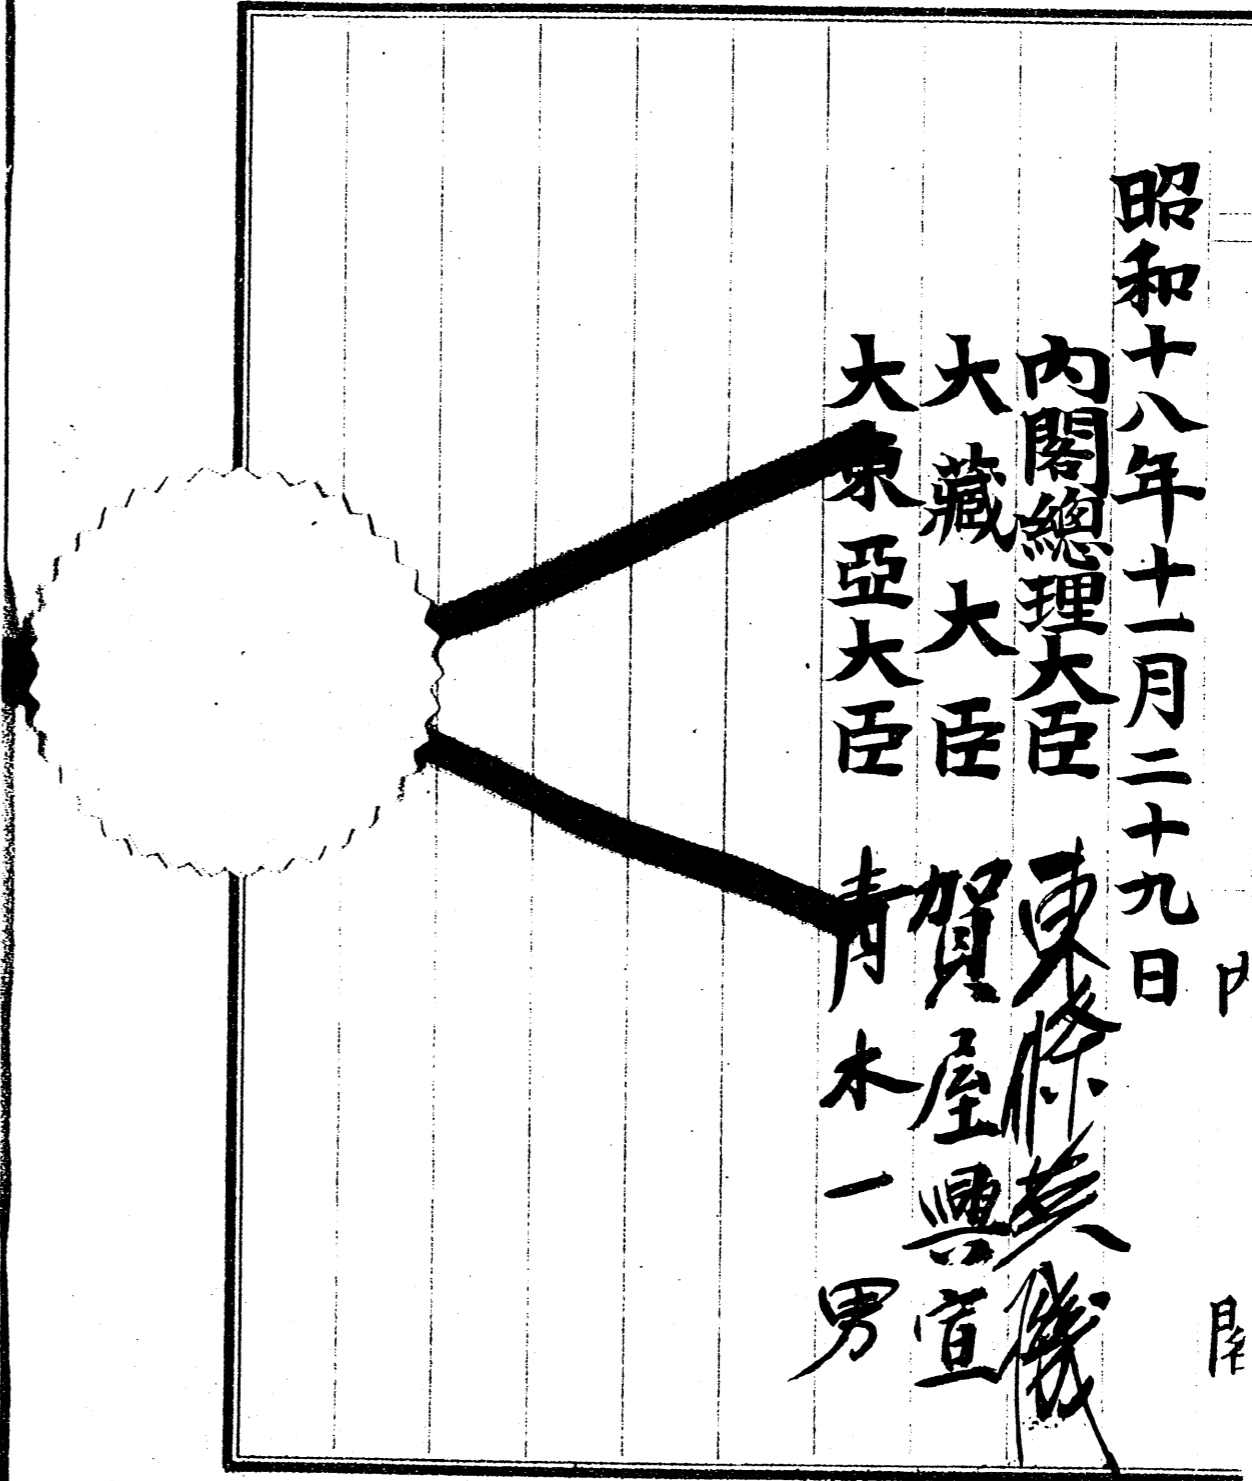 昭和十八年十一月二十九日
內閣總理大臣 東條英機
大藏大臣 賀屋興宣
大東亞大臣 青木一男
內閣